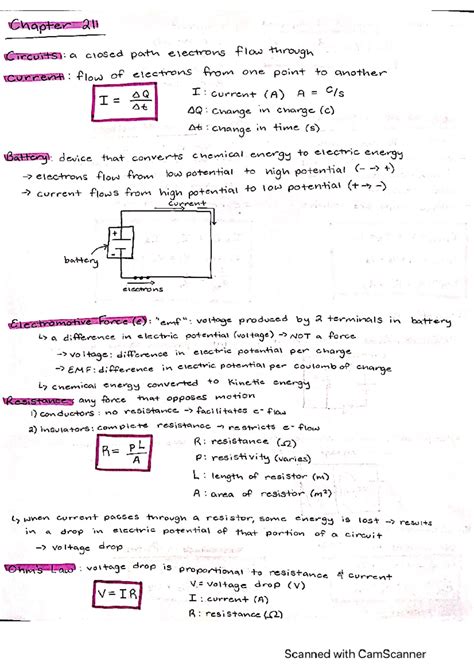 Chapter 21
Circuits: a closed path electrons flow through
Current: flow of electrons from one point to another
I = ΔQ/Δt
I: current (A) A = C/s
ΔQ: change in charge (c)
Δt: change in time (s)
Battery: device that converts chemical energy to electric energy
→ electrons flow from low potential to high potential (- → +)
→ current flows from high potential to low potential (+ → -)
current
+
-
battery
electrons
Electromotive Force (ε): "emf": voltage produced by 2 terminals in battery
↳ a difference in electric potential (voltage) → NOT a force
→ voltage: difference in electric potential per charge
→ EMF: difference in electric potential per coulomb of charge
↳ chemical energy converted to kinetic energy
Resistance: any force that opposes motion
1) conductors: no resistance → facilitates e- flow
2) Insulators: complete resistance → restricts e- flow
R = ρL/A
R: resistance (Ω)
ρ: resistivity (varies)
L: length of resistor (m)
A: area of resistor (m²)
↳ when current passes through a resistor, some energy is lost → results
in a drop in electric potential of that portion of a circuit
→ voltage drop
Ohm's Law: voltage drop is proportional to resistance & current
V = IR
V = voltage drop (V)
I: current (A)
R: resistance (Ω)
Scanned with CamScanner